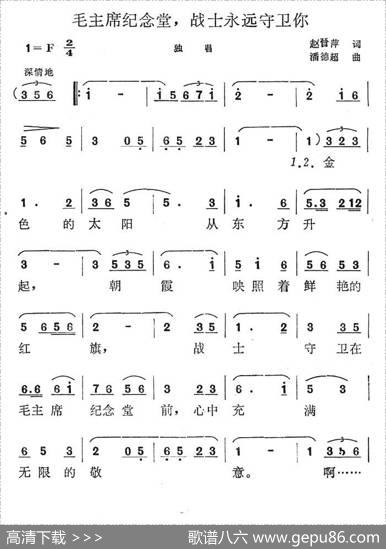 毛主席纪念堂，战士永远守卫你
1=F 2/4 独唱 赵晋萍 词
深情地 潘德超 曲
(3 5 6 ‖: i - | i 5 6 7 i | 2 - | 2 - |
5 6 5 | 3 0 0 5 | 6 5 2 3 | 1 - | 1) 3 2 3 |
1.2. 金
1 . 2 | 3 6 6 5 | 5 . 3 | 1 . 6 | 5.3 2 1 2 |
色 的 太阳 从 东方 升
3 - | 3 5 3 5 | 6 . i | 5 i 6 | 5 6 5 3 0 |
起， 朝 霞 映照着 鲜艳的
5 6 5 6 | 2 - | 2 5 3 5 | 1 . 0 | 5 . 5 |
红 旗， 战 士 守卫在
6.6 6 i | 7 6 5 6 | 3 2 3 | 6 . i | 5 |
毛主席 纪念堂 前，心中 充 满
6 5 3 | 2 - | 2 - | 2 - | 5 6 5 |
无限的 敬 意。 啊……
高清下载 >>> 歌谱八六 www.gepu86.com